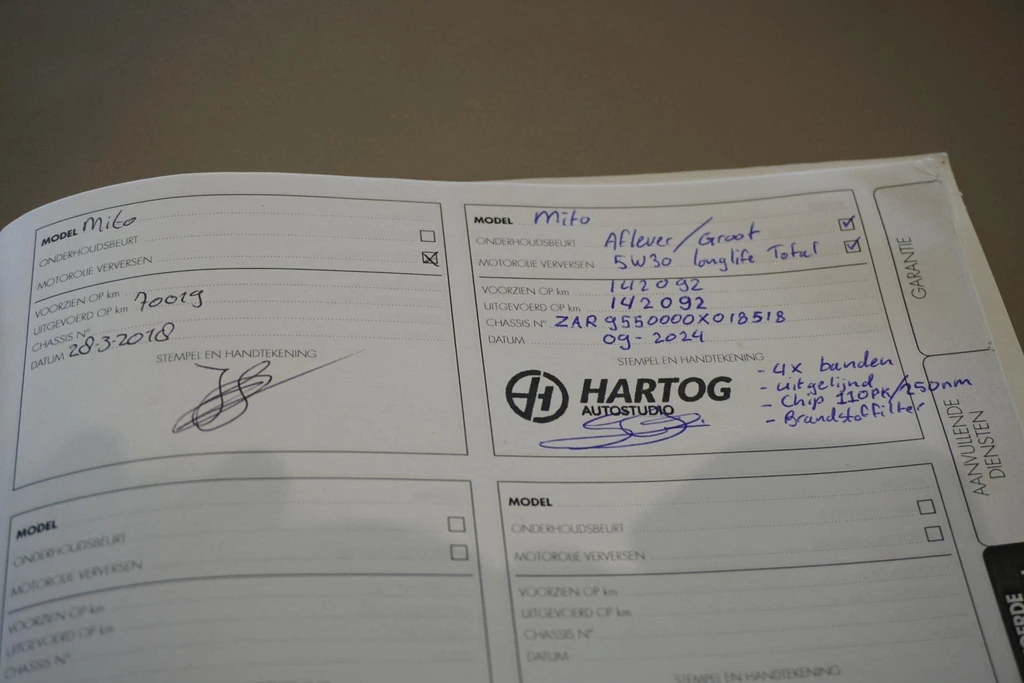 MODEL Mito
ONDERHOUDSBEURT
MOTOROLIE VERVERSEN
VOORZIEN OP km
UITGEVOERD OP km 70019
CHASSIS N°
DATUM 28-3-2018
STEMPEL EN HANDTEKENING
MODEL Mito
ONDERHOUDSBEURT Aflever/Groot
MOTOROLIE VERVERSEN 5W30 longlife Total
VOORZIEN OP km 142092
UITGEVOERD OP km 142092
CHASSIS N° ZAR9550000X018518
DATUM 09-2024
STEMPEL EN HANDTEKENING
HARTOG
AUTOSTUDIO
- 4x banden
- uitgelijnd
- Chip 110PK/250nm
- Brandstoffilter
MODEL
ONDERHOUDSBEURT
MOTOROLIE VERVERSEN
VOORZIEN OP km
UITGEVOERD OP km
CHASSIS N°
MODEL
ONDERHOUDSBEURT
MOTOROLIE VERVERSEN
VOORZIEN OP km
UITGEVOERD OP km
CHASSIS N°
DATUM
STEMPEL EN HANDTEKENING
GARANTIE
AANVULLENDE
DIENSTEN